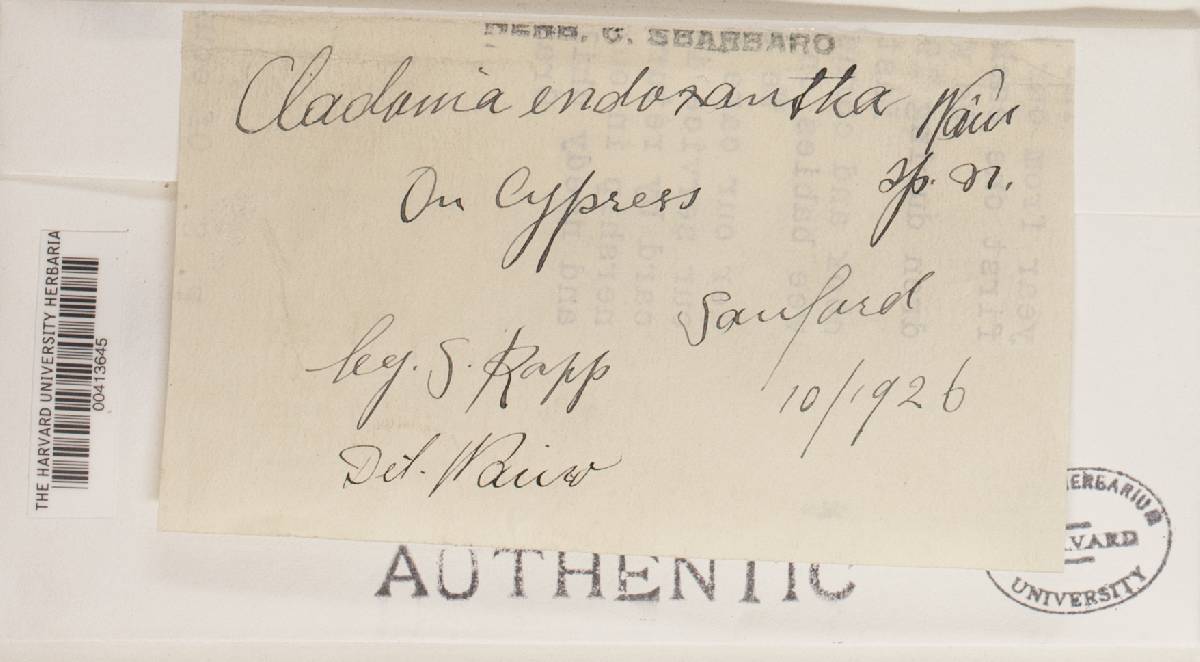 HERB. C. SBARBARO
Cladonia endoxantha Wain
sp. n.
On Cypress
Sanford
leg. S. Rapp
10/1926
Det. Wainio
AUTHENTIC
THE HARVARD UNIVERSITY HERBARIA
00413645
HERBARIUM
VARD
UNIVERSITY